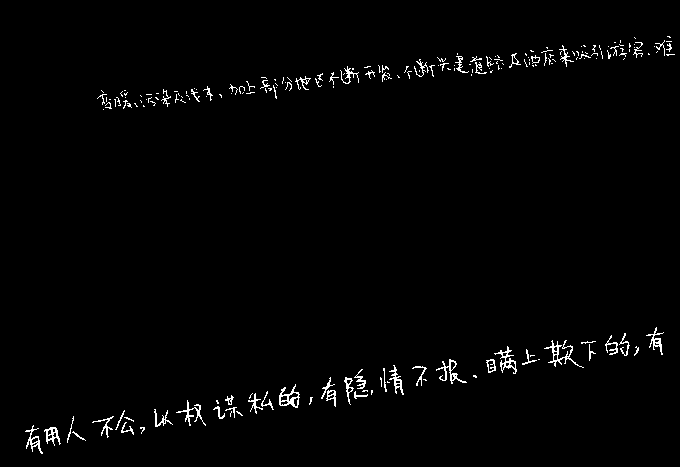 变暖、污染及线本,加上部分地区不断开发、不断兴建道路及酒店来吸引游客、难
有用人不公,以权谋私的,有隐情不报、瞒上欺下的,有